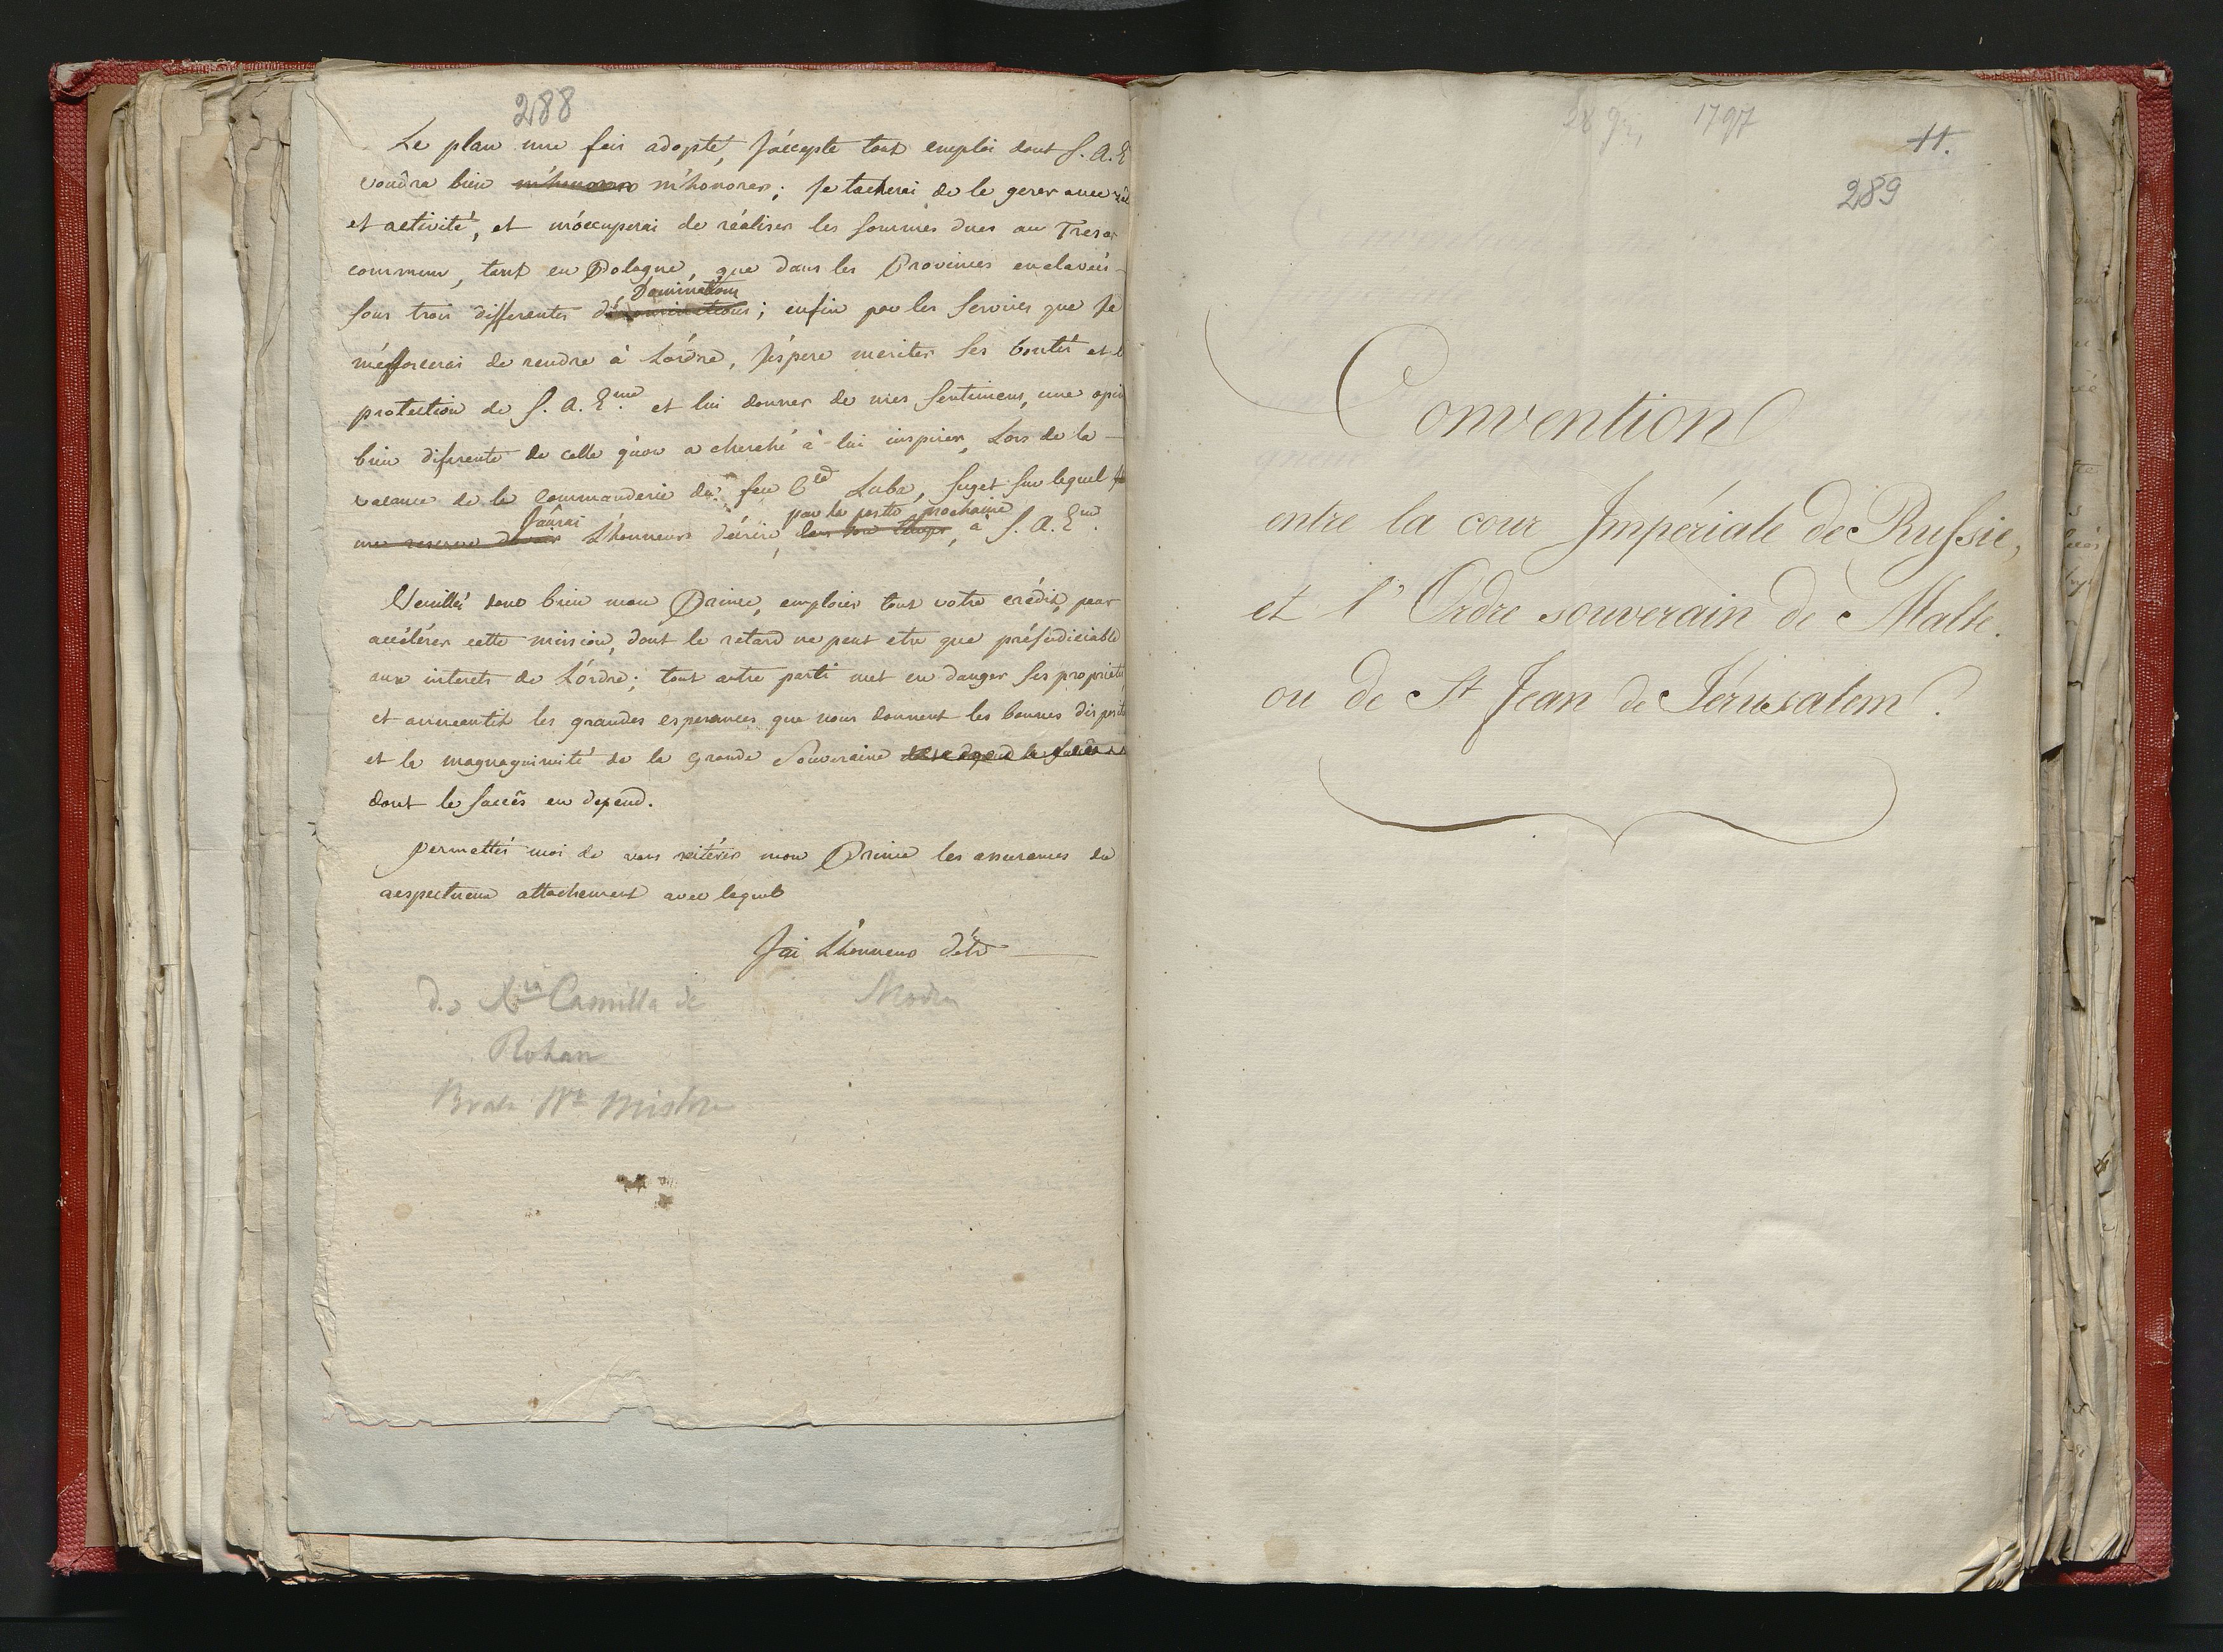 288
Le plan une fois adopté, J'accepte tout emploi dont S. A. E
voudra bien m'honorer m'honorer; Je tacherai de le gerer avec
et activité, et m'óccuperai de réaliser les sommes dues au Tresor
commun, tant en Pologne, que dans les Provinces enclavées
Dominations
sous trois differentes dénominations; enfin par les services que Je
m'éfforcerai de rendre à L'órdre, J'éspere meriter ses bontés et
protection de S. A. Eme. et lui donner de mes sentimens, une
bien diferente de celle qu'on a cherché à lui inspirer, Lors de la
vacance de la Commanderie du feu Luba, suget sur lequel
J'aúrai par la poste prochaine
me reserve L'honneur d'écrire, à S. A. Eme.
Veuillés donc bien mon Prince, emploier tout votre crédit, pour
accélérer cette mission, dont le retard ne peut etre que préjudiciable
aux interets de L'órdre; tout autre parti met en danger ses proprietés
et anneantit les grandes esperances que nous donnent les bonnes
et la magnagnimité de la grande Souveraine
dont le succês en depend.
permettés moi de vous reitérer mon Prince les assurances du
respectueux attachement avec lequel
J'ai L'honneur d'étre
do Xcia Camilla de
Rohan
Brata Mistrza
1797
11.
289
Convention
entre la cour Impériale de Russie,
et l'Ordre souverain de Malte.
ou de St Jean de Jérusalem.